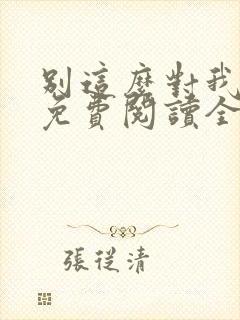 別這麼對我
免費閱讀全
張從清